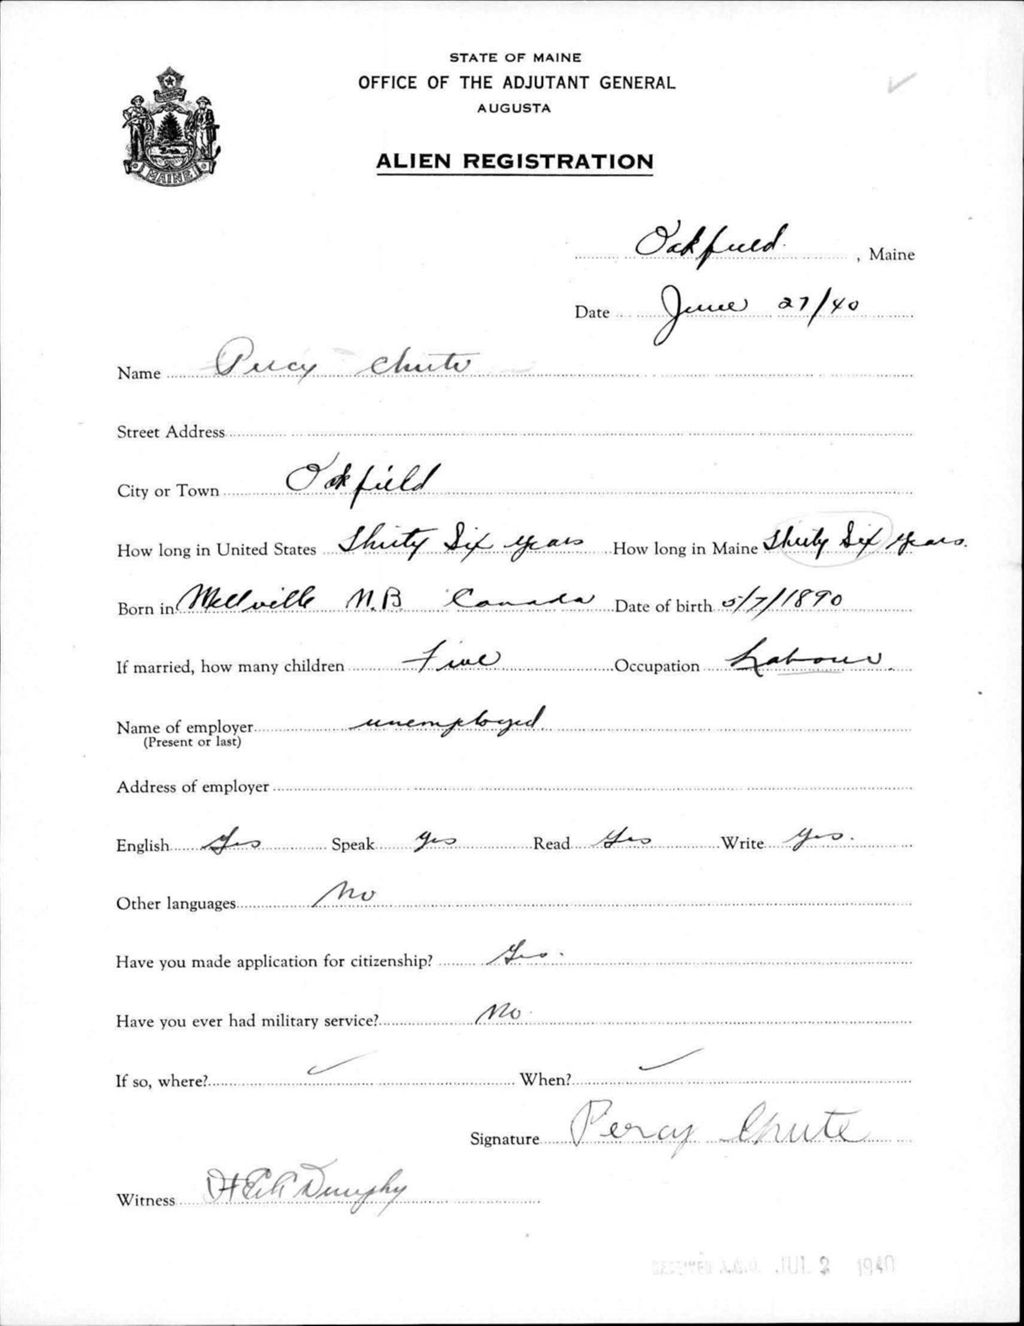 STATE OF MAINE
OFFICE OF THE ADJUTANT GENERAL
AUGUSTA
MAINE
ALIEN REGISTRATION
Oakfield , Maine
Date June 27/40
Name Percy Chute
Street Address
City or Town Oakfield
How long in United States Thirty Six years How long in Maine Thirty Six years.
Born in Wellville N.B Canada Date of birth 5/7/1890
If married, how many children Five Occupation Labour
Name of employer unemployed
(Present or last)
Address of employer
English Yes Speak yes Read Yes Write Yes.
Other languages No
Have you made application for citizenship? Yes.
Have you ever had military service? No
If so, where? When?
Signature Percy Chute
Witness Dunphy
RECEIVED A.G.O. JUL 2 1940